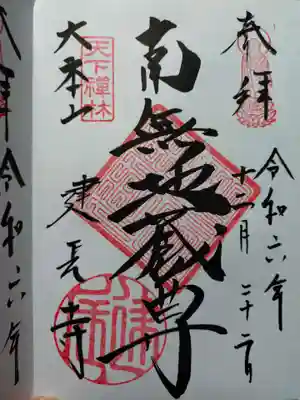 奉拝
令和六年
十二月二十二日
南無地蔵尊
天下禪林
大本山
建長寺
拝
令和六年